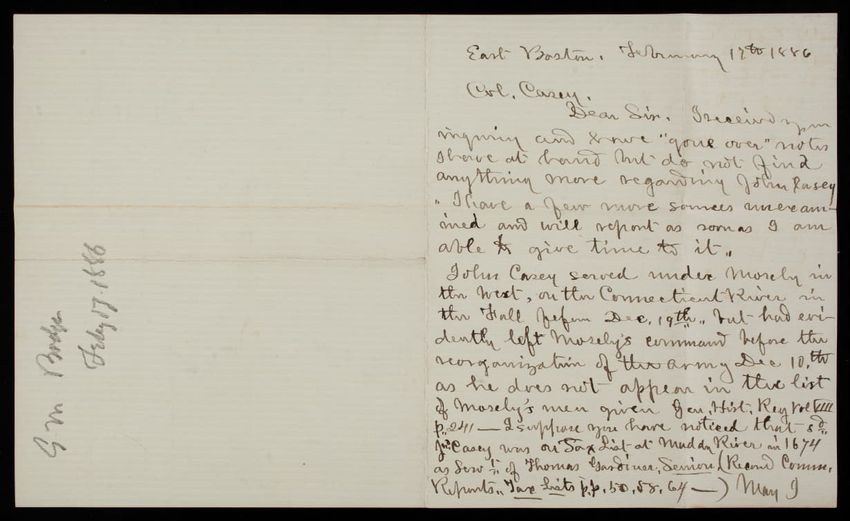 East Boston. February 17th 1886
Col. Casey.
Dear Sir. I received your
inquiry and have "gone over" notes
I have at hand but do not find
anything more regarding John Casey
"I have a few more sources unexam-
ined and will report as soon as I am
able to give time to it"
John Casey served under Mosely in
the West, on the Connecticut River in
the Fall before Dec. 19th, but had evi-
dently left Mosely's command before the
reorganization of the army Dec 10th
as he does not appear in the list
of Mosely's men given Gen. Hist. Reg Vol VIII
p. 241 — I suppose you have noticed that sd
Jno Casey was on Tax List at Muddy River in 1674
as Servt of Thomas Gardiner, Senior (Record Comm.
Reports. Tax Lists p.p. 50, 58, 64 —) May I
G M Bodge
Feby 17. 1886